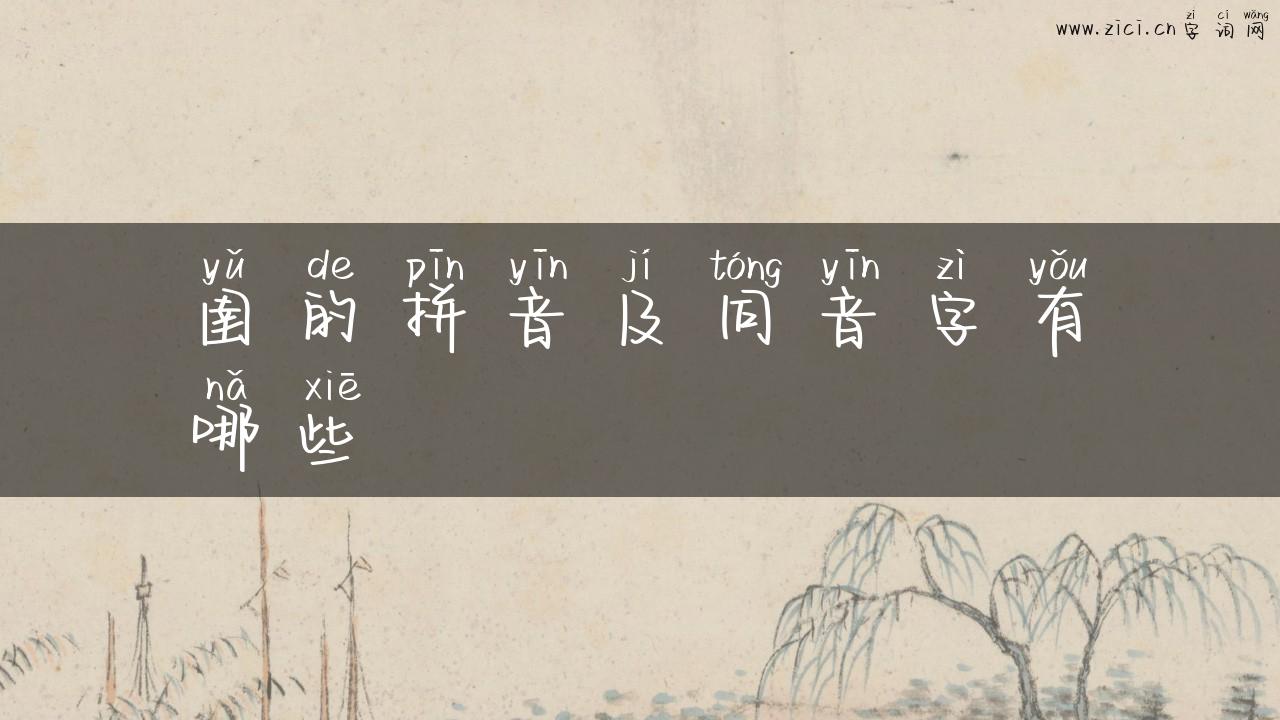 zì cí wǎng
www.zici.cn 字词网
yǔ de pīn yīn jí tóng yīn zì yǒu
圉的拼音及同音字有
nǎ xiē
哪些